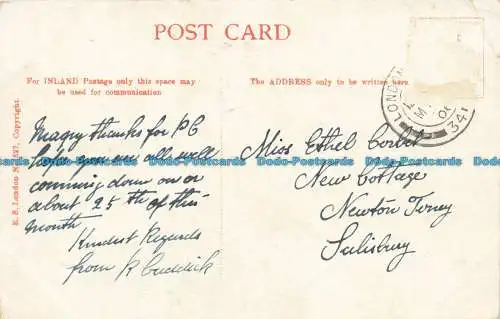 POST CARD
For INLAND Postage only this space may
be used for communication
The ADDRESS only to be written here
E. S. London
Copyright.
Magny thanks for PC
you are all well
comming down on or
about 25th of this
month
Kindest Regards
from R
Miss Ethel
New Cottage
Newton Toney
Salisbury
LONDON
341
Dodo-Postcards Dodo-Postcards Dodo-Postcards Dodo-Postcards